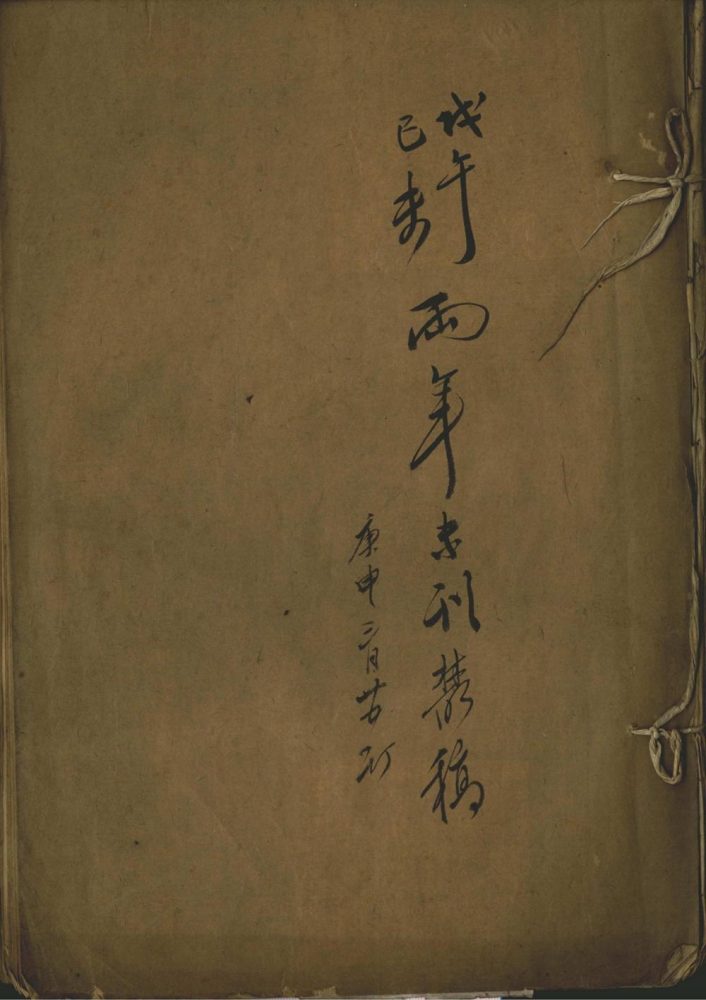 戊午
己未
兩年未刊叢稿
庚申月廿訂